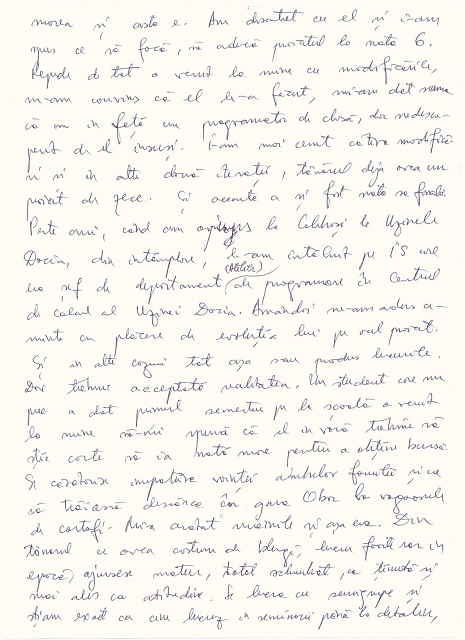 mirea și asta e. Am discutat cu el și i-am
spus ce să facă, să aducă proiectul la nota 6.
Repede de tot a venit la mine cu modificările,
m-am convins că el le-a făcut, mi-am dat seama
că am în față un programator de clasă, dar nedesco-
perit de el însuși. I-am mai cerut câteva modifică-
ri și în alte două iterații, tânărul deja avea un
proiect de zece. Și aceasta a și fost nota sa finală.
Peste ani, când am ajuns la Colibași la Uzinele
Dacia, din întâmplare, l-am întâlnit pe IS care
era șef de departament (atelier) de programare în Centrul
de calcul al Uzinei Dacia. Amândoi ne-am adus a-
minte cu plăcere de evoluția lui pe acel proiect.
Și în alte cazuri tot așa s-au produs lucrurile.
Dar trebuie acceptată realitatea. Un student care nu
prea a dat pe la școală a venit
la mine să-mi spună că el în vară trebuie să
știe carte să ia note mari pentru a obține bursă.
Se căsătorise împotriva voinței ambelor familii și ca
să trăiască descărca în gara Obor la vagoanele
de cartofi. Mi-a arătat mâinile și așa era. Din
tânărul ce avea costum de blugi, lucru foarte rar în
epocă, ajunsese matur, total schimbat, ca ținută și
mai ales ca atitudine. Se lucra cu semigrupe și
știam exact ce am lucrat în seminarii până la detaliu,